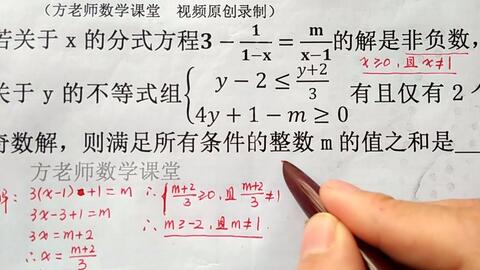 （方老师数学课堂 视频原创录制）
若关于 x 的分式方程3 − 1/(1−x) = m/(x−1) 的解是非负数，
x≥0, 且 x≠1
关于 y 的不等式组{ y − 2 ≤ (y+2)/3
4y + 1 − m ≥ 0 有且仅有 2 个
奇数解，则满足所有条件的整数 m 的值之和是__
方老师数学课堂
解: 3(x-1)+1=m
3x-3+1=m
3x=m+2
∴ x = (m+2)/3
∴ { (m+2)/3 ≥0, 且 (m+2)/3 ≠1
∴ m≥-2, 且 m≠1.